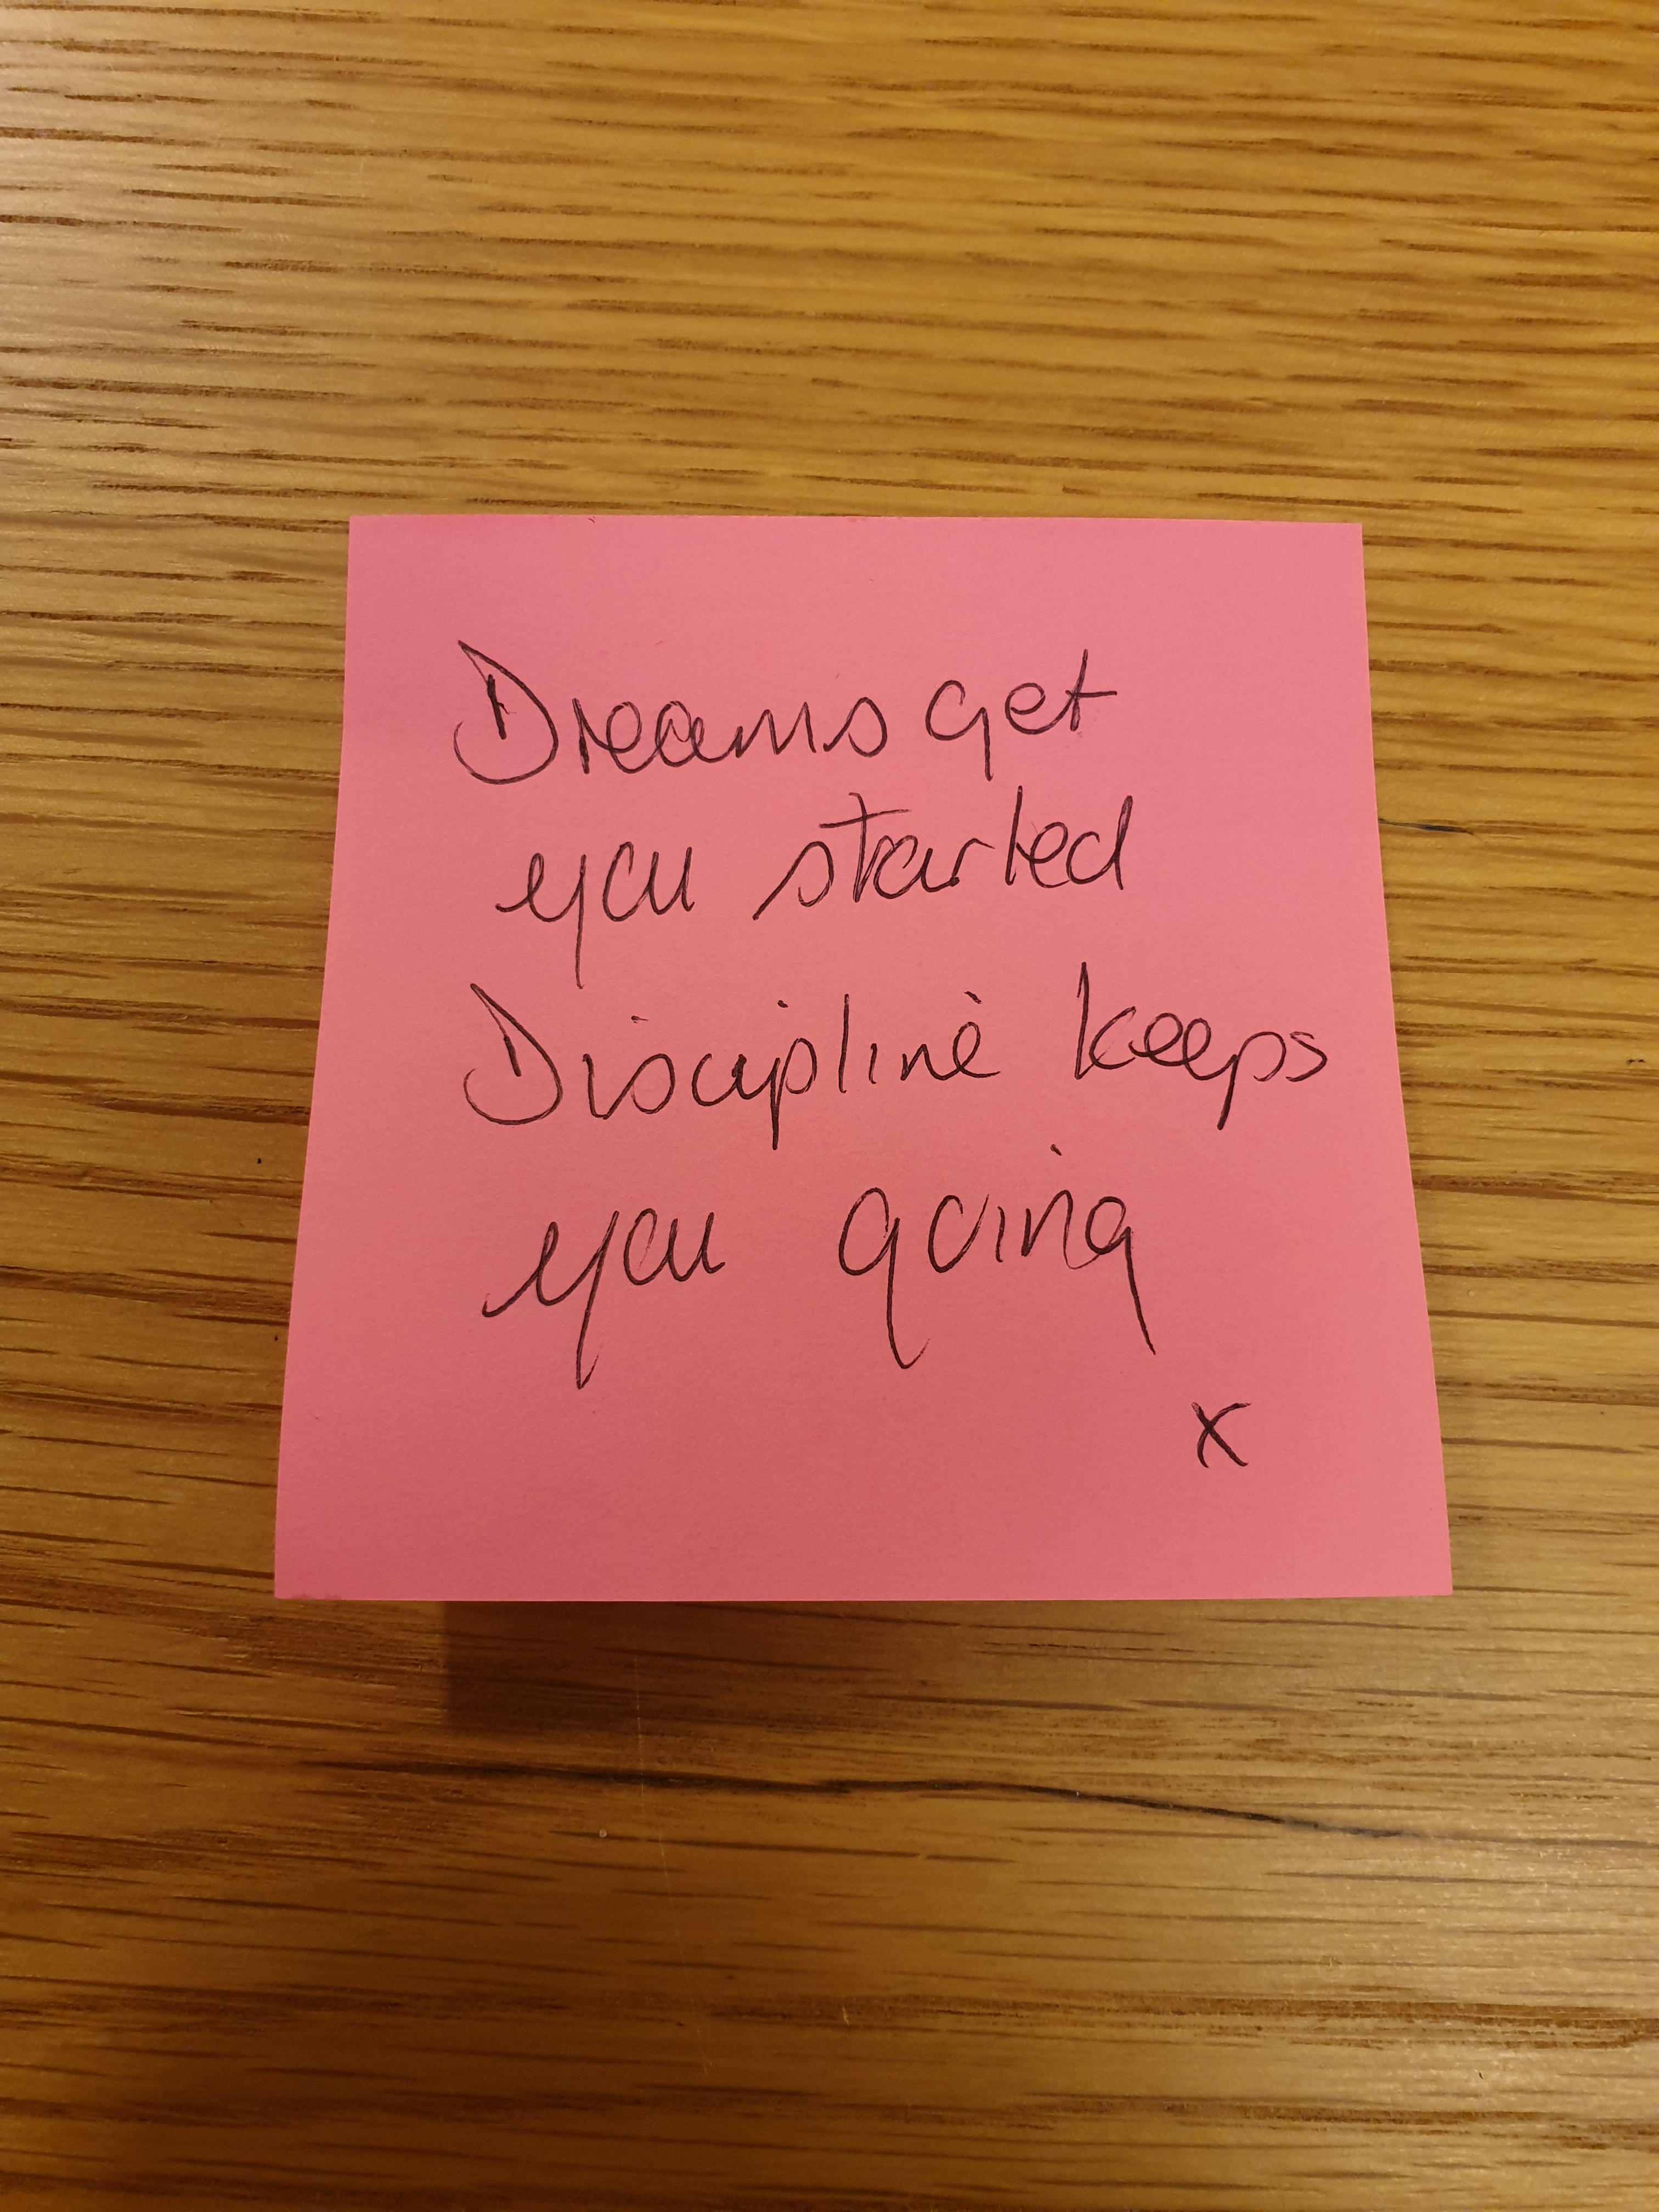 Dreams get
you started
Discipline keeps
you going
x